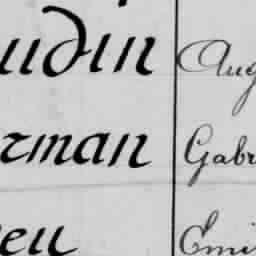 udin Aug
rman Gabr
eu Emi